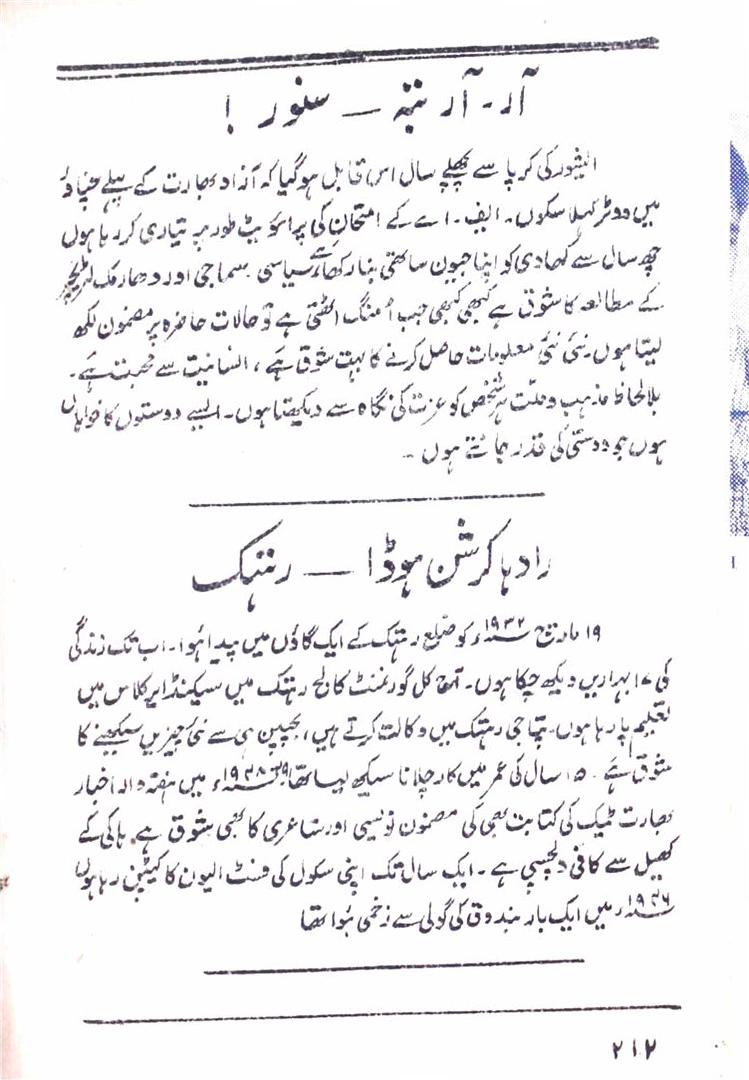 آر۔ آر نتبہ — سنور !
ایشور کی کرپا سے پچھلے سال اس قابل ہو گیا کہ آزاد بھارت کے پہلے چناؤ
میں ووٹر کہلا سکوں۔ ایف۔ اے کے امتحان کی پرائیویٹ طور پر تیاری کر رہا ہوں
چھ سال سے کھادی کو اپنا جیون ساتھی بنا رکھا ہے سیاسی سماجی اور دھارمک لٹریچر
کے مطالعہ کا شوق ہے کبھی کبھی جب اُمنگ اٹھتی ہے تو حالات حاضرہ پر مضمون لکھ
لیتا ہوں۔ نئی نئی معلومات حاصل کرنے کا بہت شوق ہے، انسانیت سے محبت ہے۔
بلا لحاظ مذہب و ملت ہر شخص کو عزت کی نگاہ سے دیکھتا ہوں۔ ایسے دوستوں کا خواہاں
ہوں جو دوستی کی قدر جانتے ہوں ۔
رادہا کرشن ہوڈا — رہتک
۱۹ مارچ ۱۹۳۲ء کو ضلع رہتک کے ایک گاؤں میں پیدا ہوا۔ اب تک زندگی
کی ۱۷ بہاریں دیکھ چکا ہوں۔ آج کل گورنمنٹ کالج رہتک میں سیکنڈ ایر کلاس میں
تعلیم پا رہا ہوں۔ پتا جی رہتک میں وکالت کرتے ہیں، بچپن ہی سے نئی چیزیں سیکھنے کا
شوق ہے ۔ ۱۵ سال کی عمر میں کار چلانا سیکھ لیا تھا میں ہفتہ وار اخبار
بھارت تلک کی کتابت بھی کی مضمون نویسی اور شاعری کا بھی شوق ہے۔ ہاکی کے
کھیل سے کافی دلچسپی ہے ۔ ایک سال تک اپنی سکول کی فسٹ الیون کا کیپٹن رہا ہوں
۱۹۳۶ء میں ایک بار بندوق کی گولی سے زخمی ہوا تھا
۲۱۲